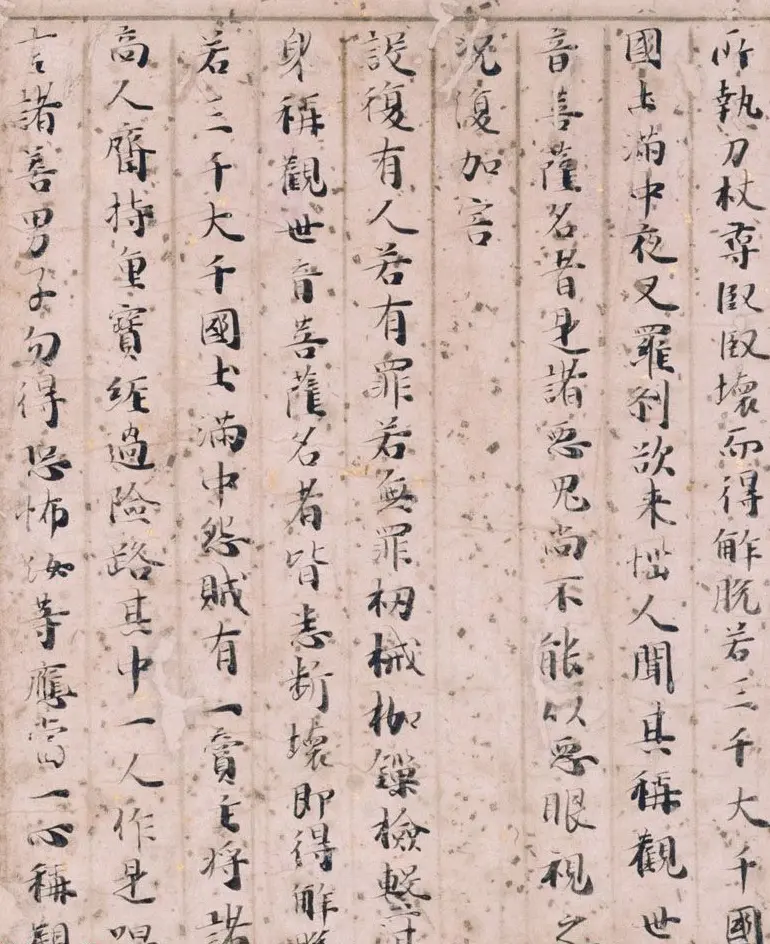 所執刀杖尋段段壞而得解脫若三千大千國
國土滿中夜叉羅剎欲来惱人聞其稱觀世
音菩薩名者是諸惡鬼尚不能以惡眼視之
況復加害
設復有人若有罪若無罪杻械枷鎖檢繫其
身稱觀世音菩薩名者皆悉斷壞即得解脫
若三千大千國土滿中怨賊有一商主将諸
商人齎持重寶經過險路其中一人作是唱
言諸善男子勿得恐怖汝等應當一心稱觀